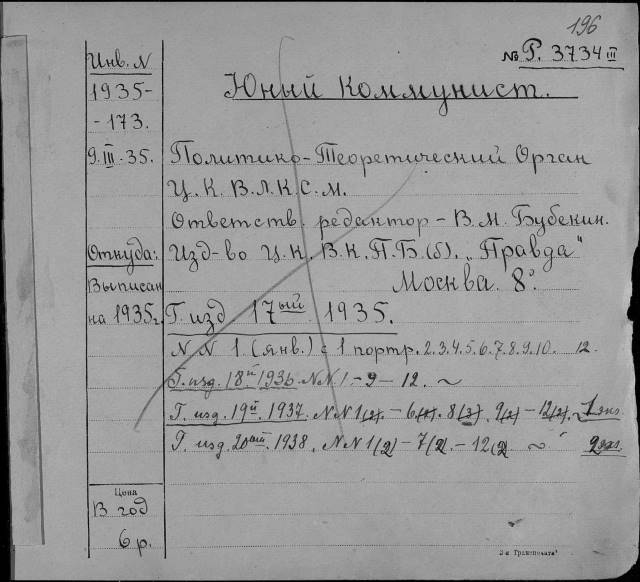 196
№ Р. 3734 III
Инв. N
1935-
-173.
9. III. 35.
Юный Коммунист.
Политико-Теоретический Орган
Ц. К. В. Л. К. С. М.
Ответств. редактор - В. М. Бубекин.
Откуда:
Изд-во Ц. К. В. К. П. Б. (б). „Правда"
Москва. 8°.
Выписан
на 1935 г.
Г. изд. 17ый 1935.
N N 1 (янв.) с 1 портр. 2. 3. 4. 5. 6. 7. 8. 9. 10. 12.
Г. изд. 18й 1936. N N 1 - 9 - 12. ~
Г. изд. 19й. 1937. N N 1(2) - 6 8(3) 9(2) - 12(2). ~ 1 экз.
Г. изд. 20ый. 1938. N N 1(2) - 7(2. - 12(2 ~ 2 экз.
Цена
В год
6 р.